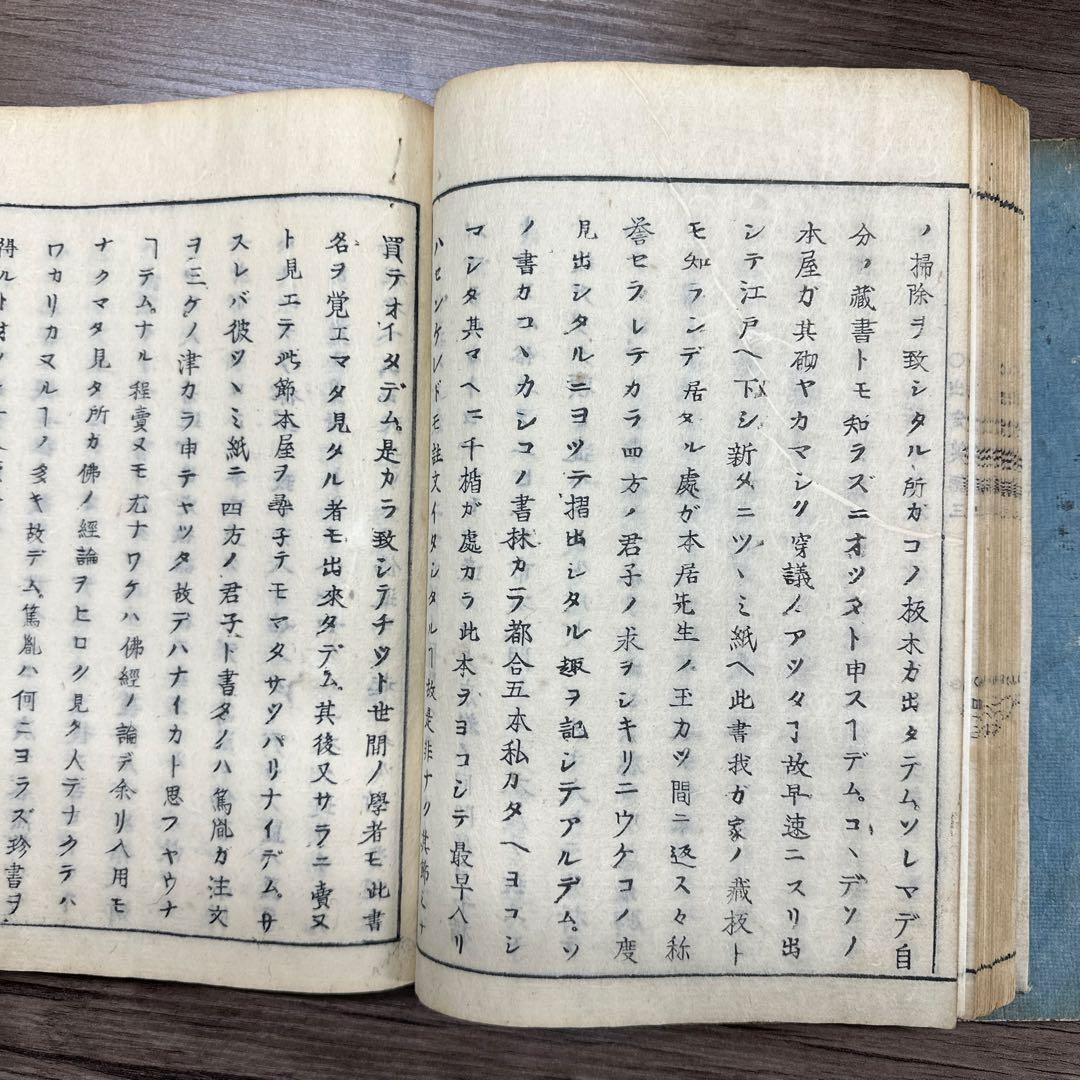 ノ掃除ヲ致シタル所カコノ板木カ出タデム。ソレマデ自
分ノ藏書トモ知ラズニオツタト申スヿデム。コヽデソノ
本屋ガ其砌ヤカマシク穿議ノアツタヿ故早速ニスリ出
シテ江戸ヘ下シ新タニツヽミ紙ヘ此書我カ家ノ藏板ト
モ知ランデ居タル處ガ本居先生ノ玉カツ間ニ返ス々称
誉セラレテカラ四方ノ君子ノ求ヲシキリニウケコノ度
見出シタルニヨツテ摺出シタル趣ヲ記シテアルデム。ソ
ノ書カコヽカシコノ書林カラ都合五本私カタヘヨコシ
マシタ其マヘニ千楯ガ處カラ此本ヲヨコシテ最早入リ
ハセンケレドモ註文イタシタルヿ故是非ナク其
買テオイタデム。是カラ致シテチツト世間ノ學者モ此書
名ヲ覚エマタ見タル者モ出來タデム。其後又サラニ賣又
ト見エテ此節本屋ヲ尋子テモマタサツパリナイデム。サ
スレバ彼ツヽミ紙ニ四方ノ君子ト書タノハ篤胤カ注文
ヲ三ケノ津カラ申テヤツタ故デハナイカト思フヤウナ
ヿデム。ナル程賣ヌモ尤ナワケハ佛經ノ論デ余リ入用モ
ナクマタ見タ所カ佛ノ經論ヲヒロク見タ人デナクテハ
ワカリカヌルヿノ多キ故デム。篤胤ハ何ニヨラズ珍書ヲ